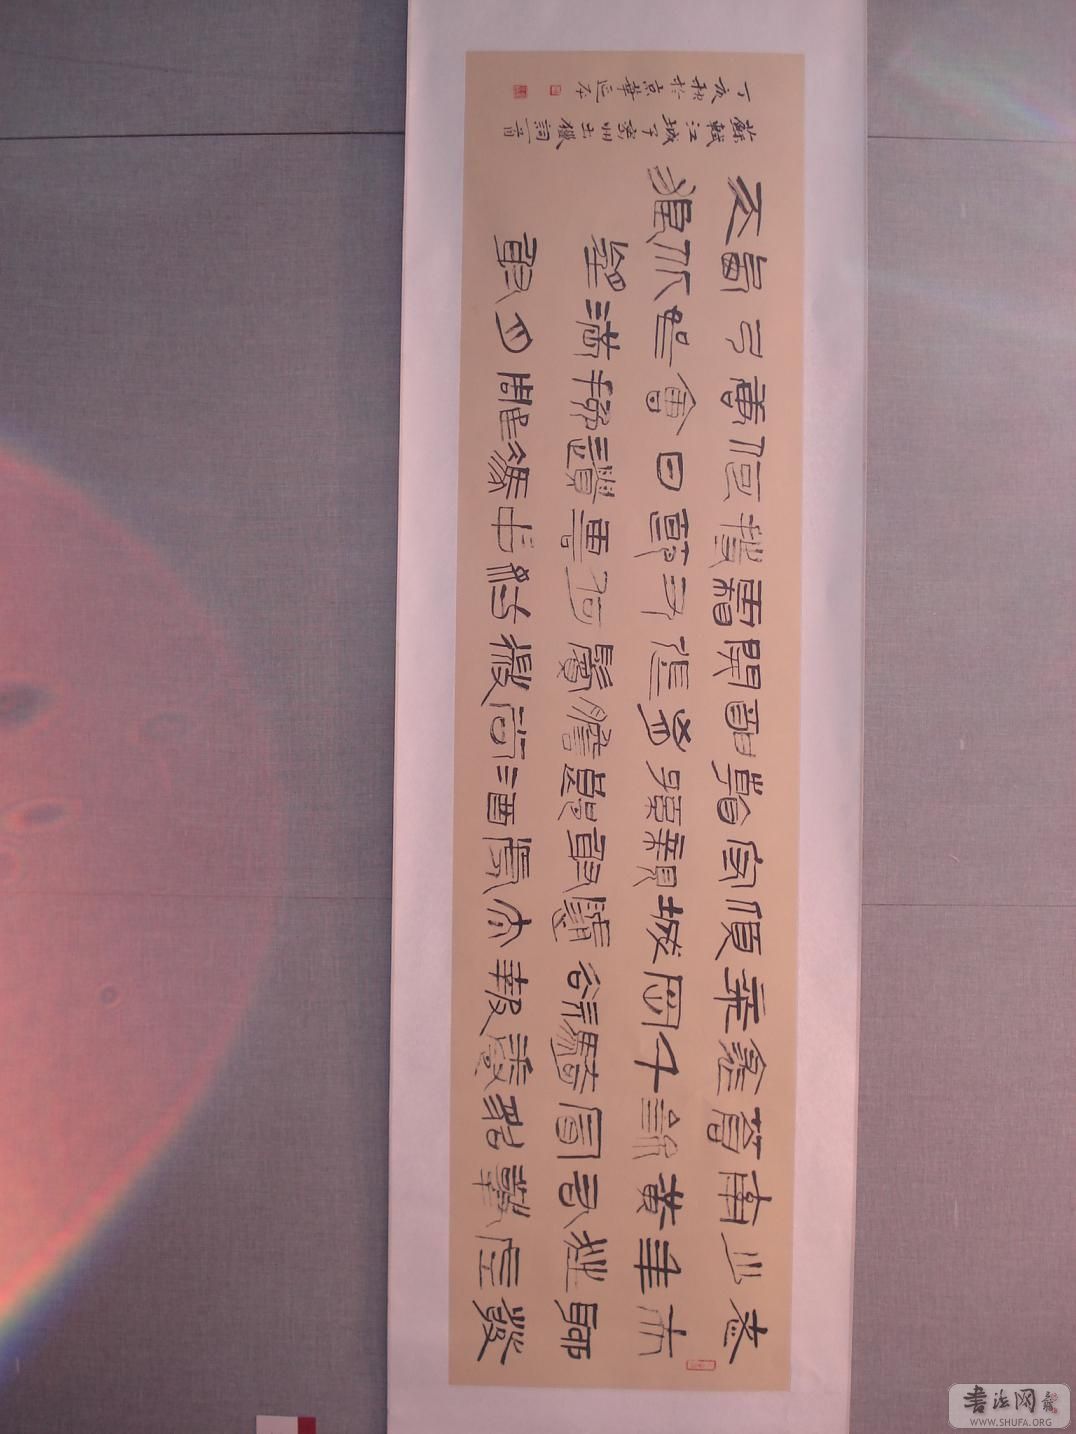 老夫聊發
少年狂左
牽黃右擎
蒼錦帽貂
裘千騎卷
平岡為報
傾城隨太
守親射虎
看孫郎酒
酣胸膽尚
開張鬢微
霜又何妨
持節雲中
何日遣馮
唐會挽雕
弓如滿月
西北望射
天狼
蘇軾江城子密州出獵詞一首
丁亥秋於京華
書法网
WWW.SHUFA.ORG